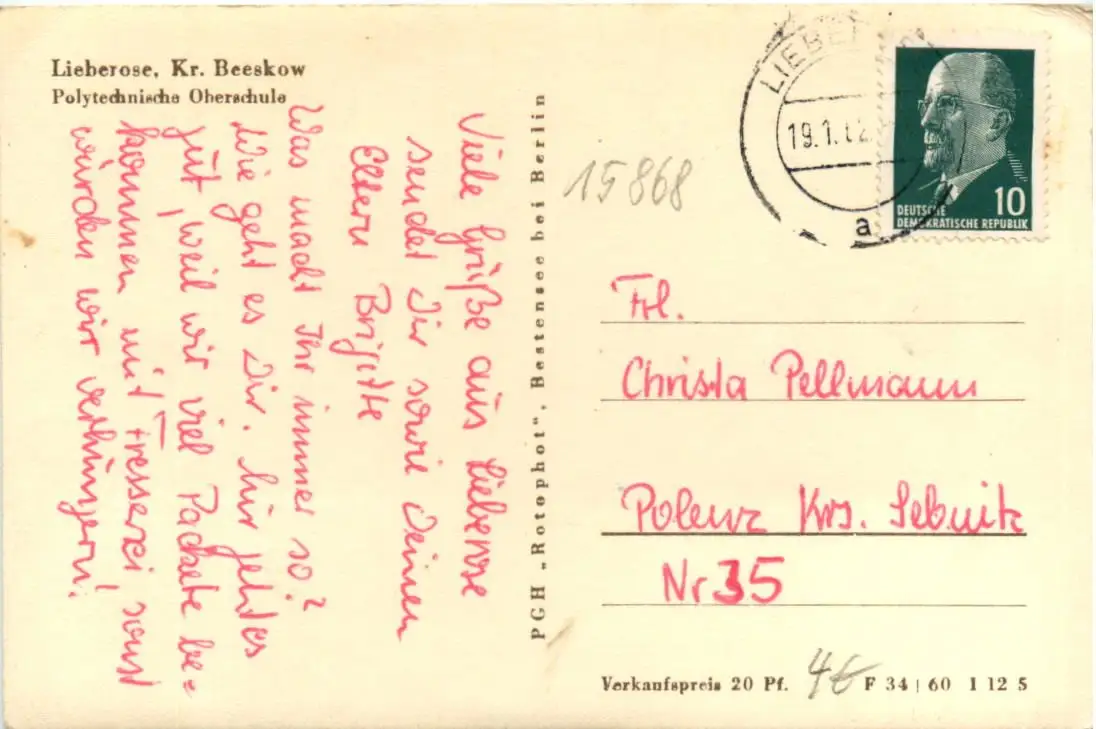 Lieberose, Kr. Beeskow
Polytechnische Oberschule
Viele Grüße aus Lieberose
sendet Dir sowie Deinen
Eltern Brigitte
Was macht Ihr immer so?
Wie geht es Dir. Mir geht es
gut, weil wir viel Packete be-
kommen mit Fresserei sonst
würden wir verhungern!
PGH „Rotophot“, Bestensee bei Berlin
15868
19.1.62
a
10
DEUTSCHE
DEMOKRATISCHE REPUBLIK
Frl.
Christa Pellmann
Polenz Krs. Sebnitz
Nr 35
Verkaufspreis 20 Pf.
4€
F 34 | 60 1 12 5